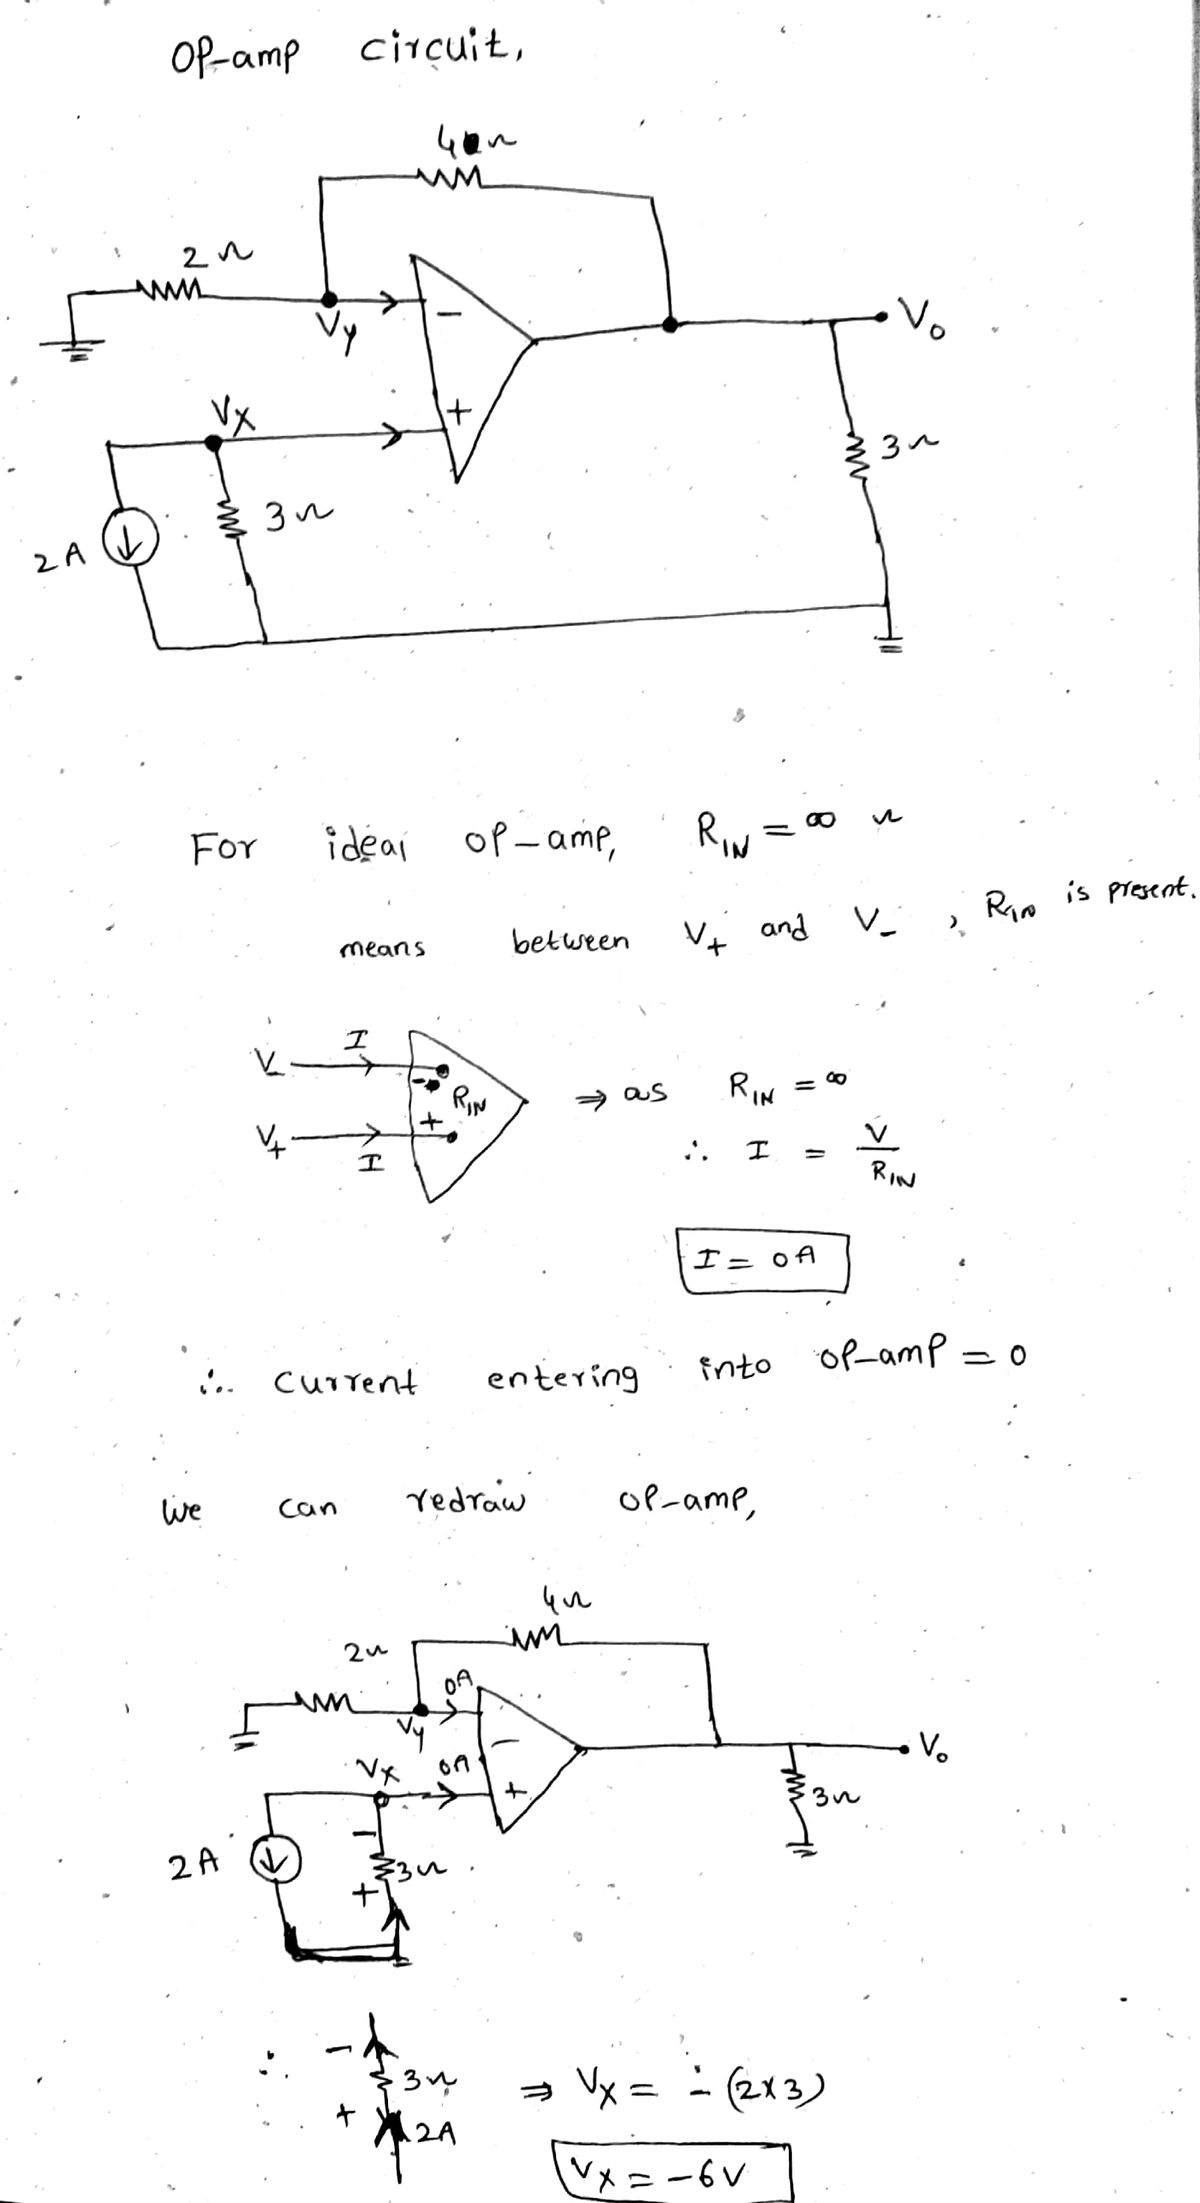 OP-amp circuit,
4Ω
2Ω
Vy
-
Vo
Vx
+
3Ω
3Ω
2A
For ideal op-amp, RIN = ∞ Ω
means between V+ and V- , RIN is present.
V- I
-
RIN
⇒ as RIN = ∞
V+ I
+
∴ I = V/RIN
I = 0A
∴ current entering into op-amp = 0
We can redraw op-amp,
4Ω
2Ω
0A
Vy
-
Vo
Vx 0A
+
3Ω
-
2A
3Ω
+
∴ - 3Ω ⇒ Vx = - (2x3)
+ 2A
Vx = -6V